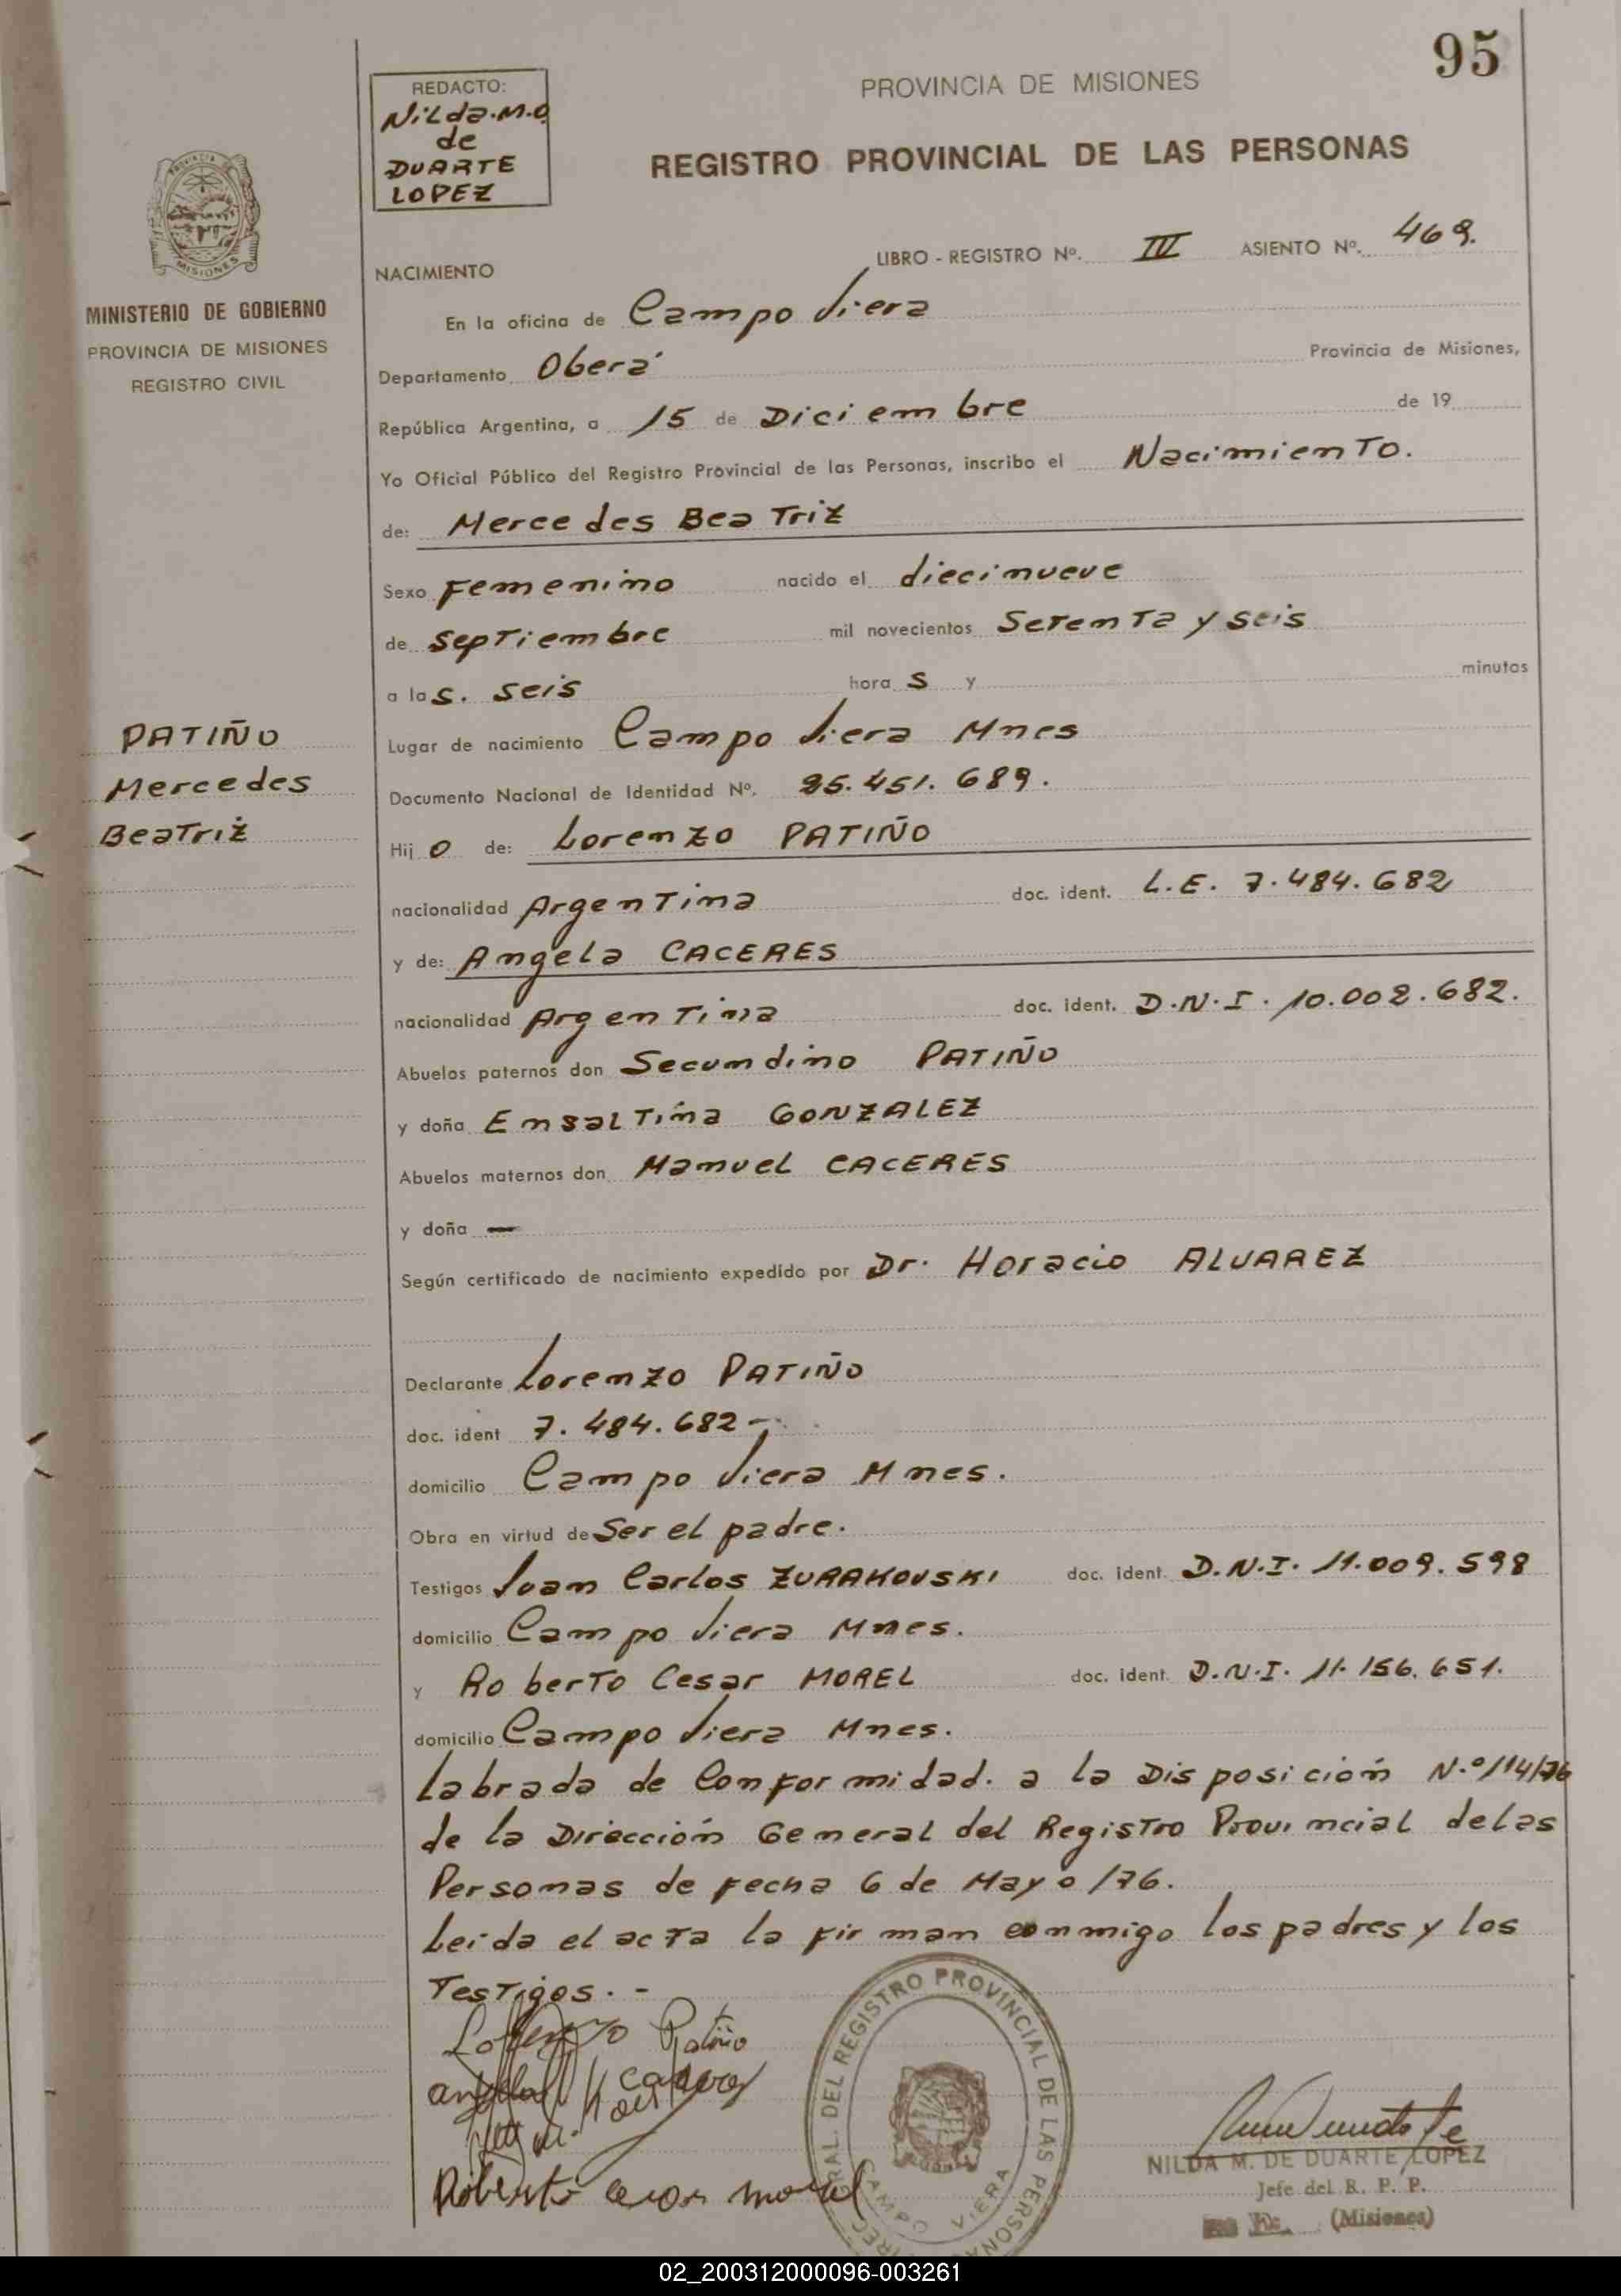 95
REDACTO:
Nilda.M.O
de
DUARTE
LOPEZ
PROVINCIA DE MISIONES
REGISTRO PROVINCIAL DE LAS PERSONAS
PROVINCIA DE
MISIONES
MINISTERIO DE GOBIERNO
PROVINCIA DE MISIONES
REGISTRO CIVIL
LIBRO - REGISTRO Nº. III ASIENTO Nº. 469.
NACIMIENTO
En la oficina de Campo Viera
Departamento Oberá Provincia de Misiones,
República Argentina, a 15 de Diciembre de 19
Yo Oficial Público del Registro Provincial de las Personas, inscribo el Nacimiento.
de: Mercedes Beatriz
Sexo Femenino nacido el diecinueve
de Septiembre mil novecientos Setenta y seis
a las. seis hora s y minutos
PATIÑO
Mercedes
Beatriz
Lugar de nacimiento Campo Viera Mnes
Documento Nacional de Identidad Nº. 25.451.689.
Hijo de: Lorenzo PATIÑO
nacionalidad Argentina doc. ident. L.E. 7.484.682
y de: Angela CACERES
nacionalidad Argentina doc. ident. D.N.I. 10.002.682.
Abuelos paternos don Secundino PATIÑO
y doña GONZALEZ
Abuelos maternos don Manuel CACERES
y doña —
Según certificado de nacimiento expedido por Dr. Horacio ALVAREZ
Declarante Lorenzo PATIÑO
doc. ident 7.484.682-
domicilio Campo Viera Mnes.
Obra en virtud de Ser el padre.
Testigos Juan Carlos ZURAKOVSKI doc. ident. D.N.I. 11.009.598
domicilio Campo Viera Mnes.
y Roberto Cesar MOREL doc. ident. D.N.I. 11.156.651.
domicilio Campo Viera Mnes.
Labrada de Conformidad. a la Disposición N.º 114/76
de la Dirección General del Registro Provincial de las
Personas de fecha 6 de Mayo/76.
Leida el acta la firman conmigo los padres y los
Testigos. -
Lorenzo Patiño
Roberto cesar morel
REGISTRO PROVINCIAL DE LAS
CAMPO VIERA
NILDA M. DE DUARTE LOPEZ
Jefe del R. P. P.
(Misiones)
02_200312000096-003261